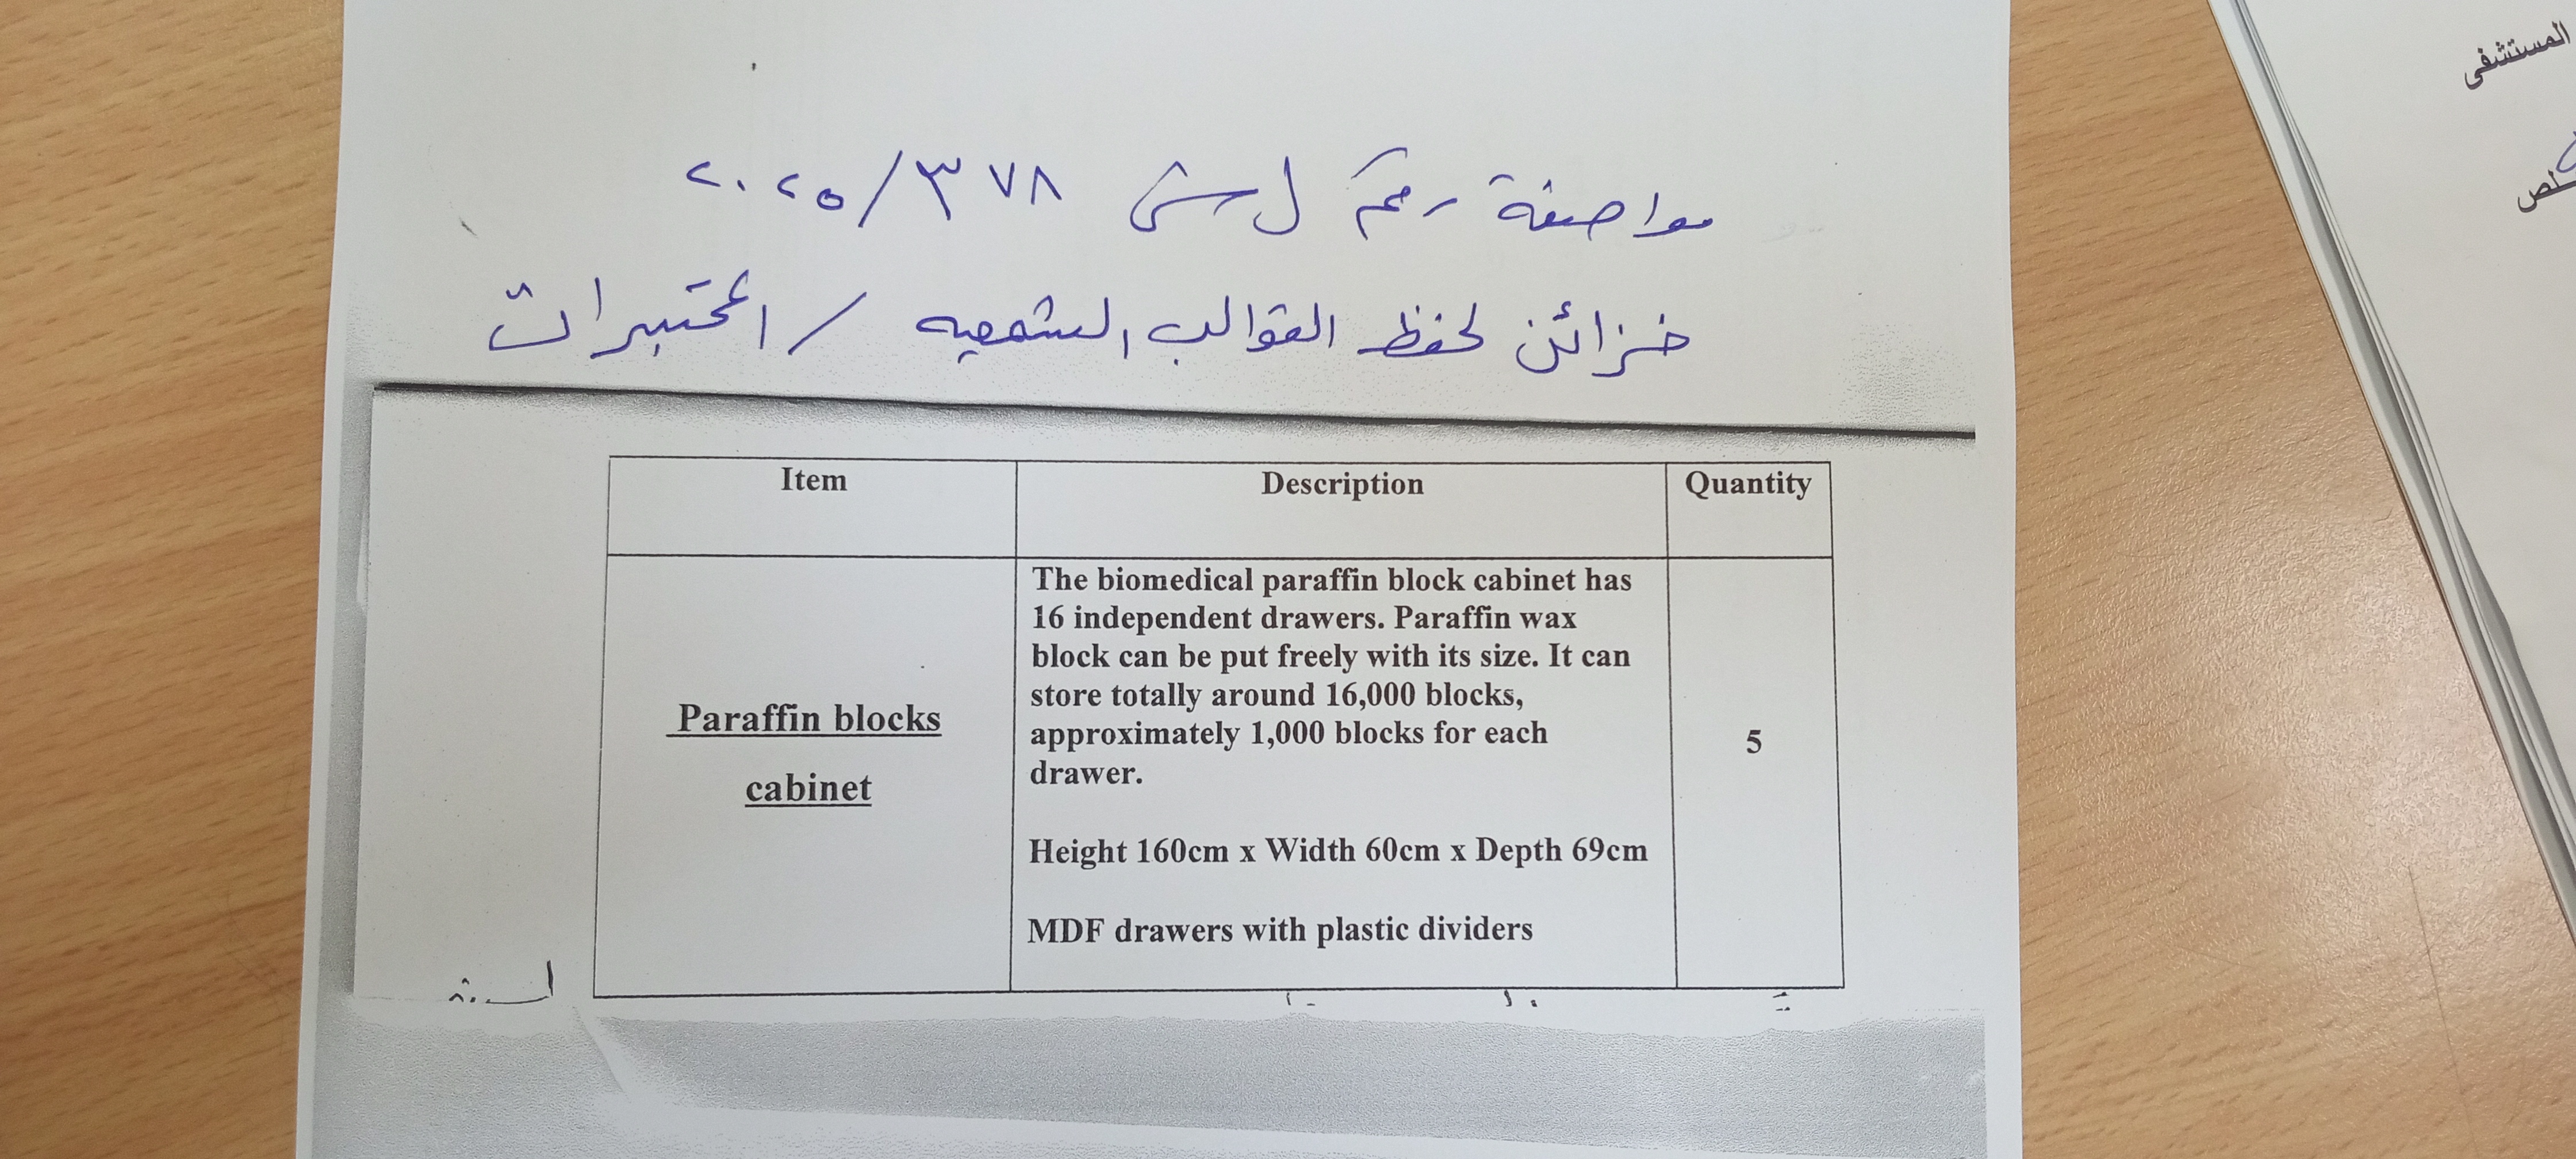 مواصفة رقم ل ش ٣٧٨/٢٠٢٥
خزائن لحفظ القوالب الشمعيه / المختبرات
Item Description Quantity
Paraffin blocks
cabinet
The biomedical paraffin block cabinet has
16 independent drawers. Paraffin wax
block can be put freely with its size. It can
store totally around 16,000 blocks,
approximately 1,000 blocks for each
drawer.
Height 160cm x Width 60cm x Depth 69cm
MDF drawers with plastic dividers
5
المستشفى